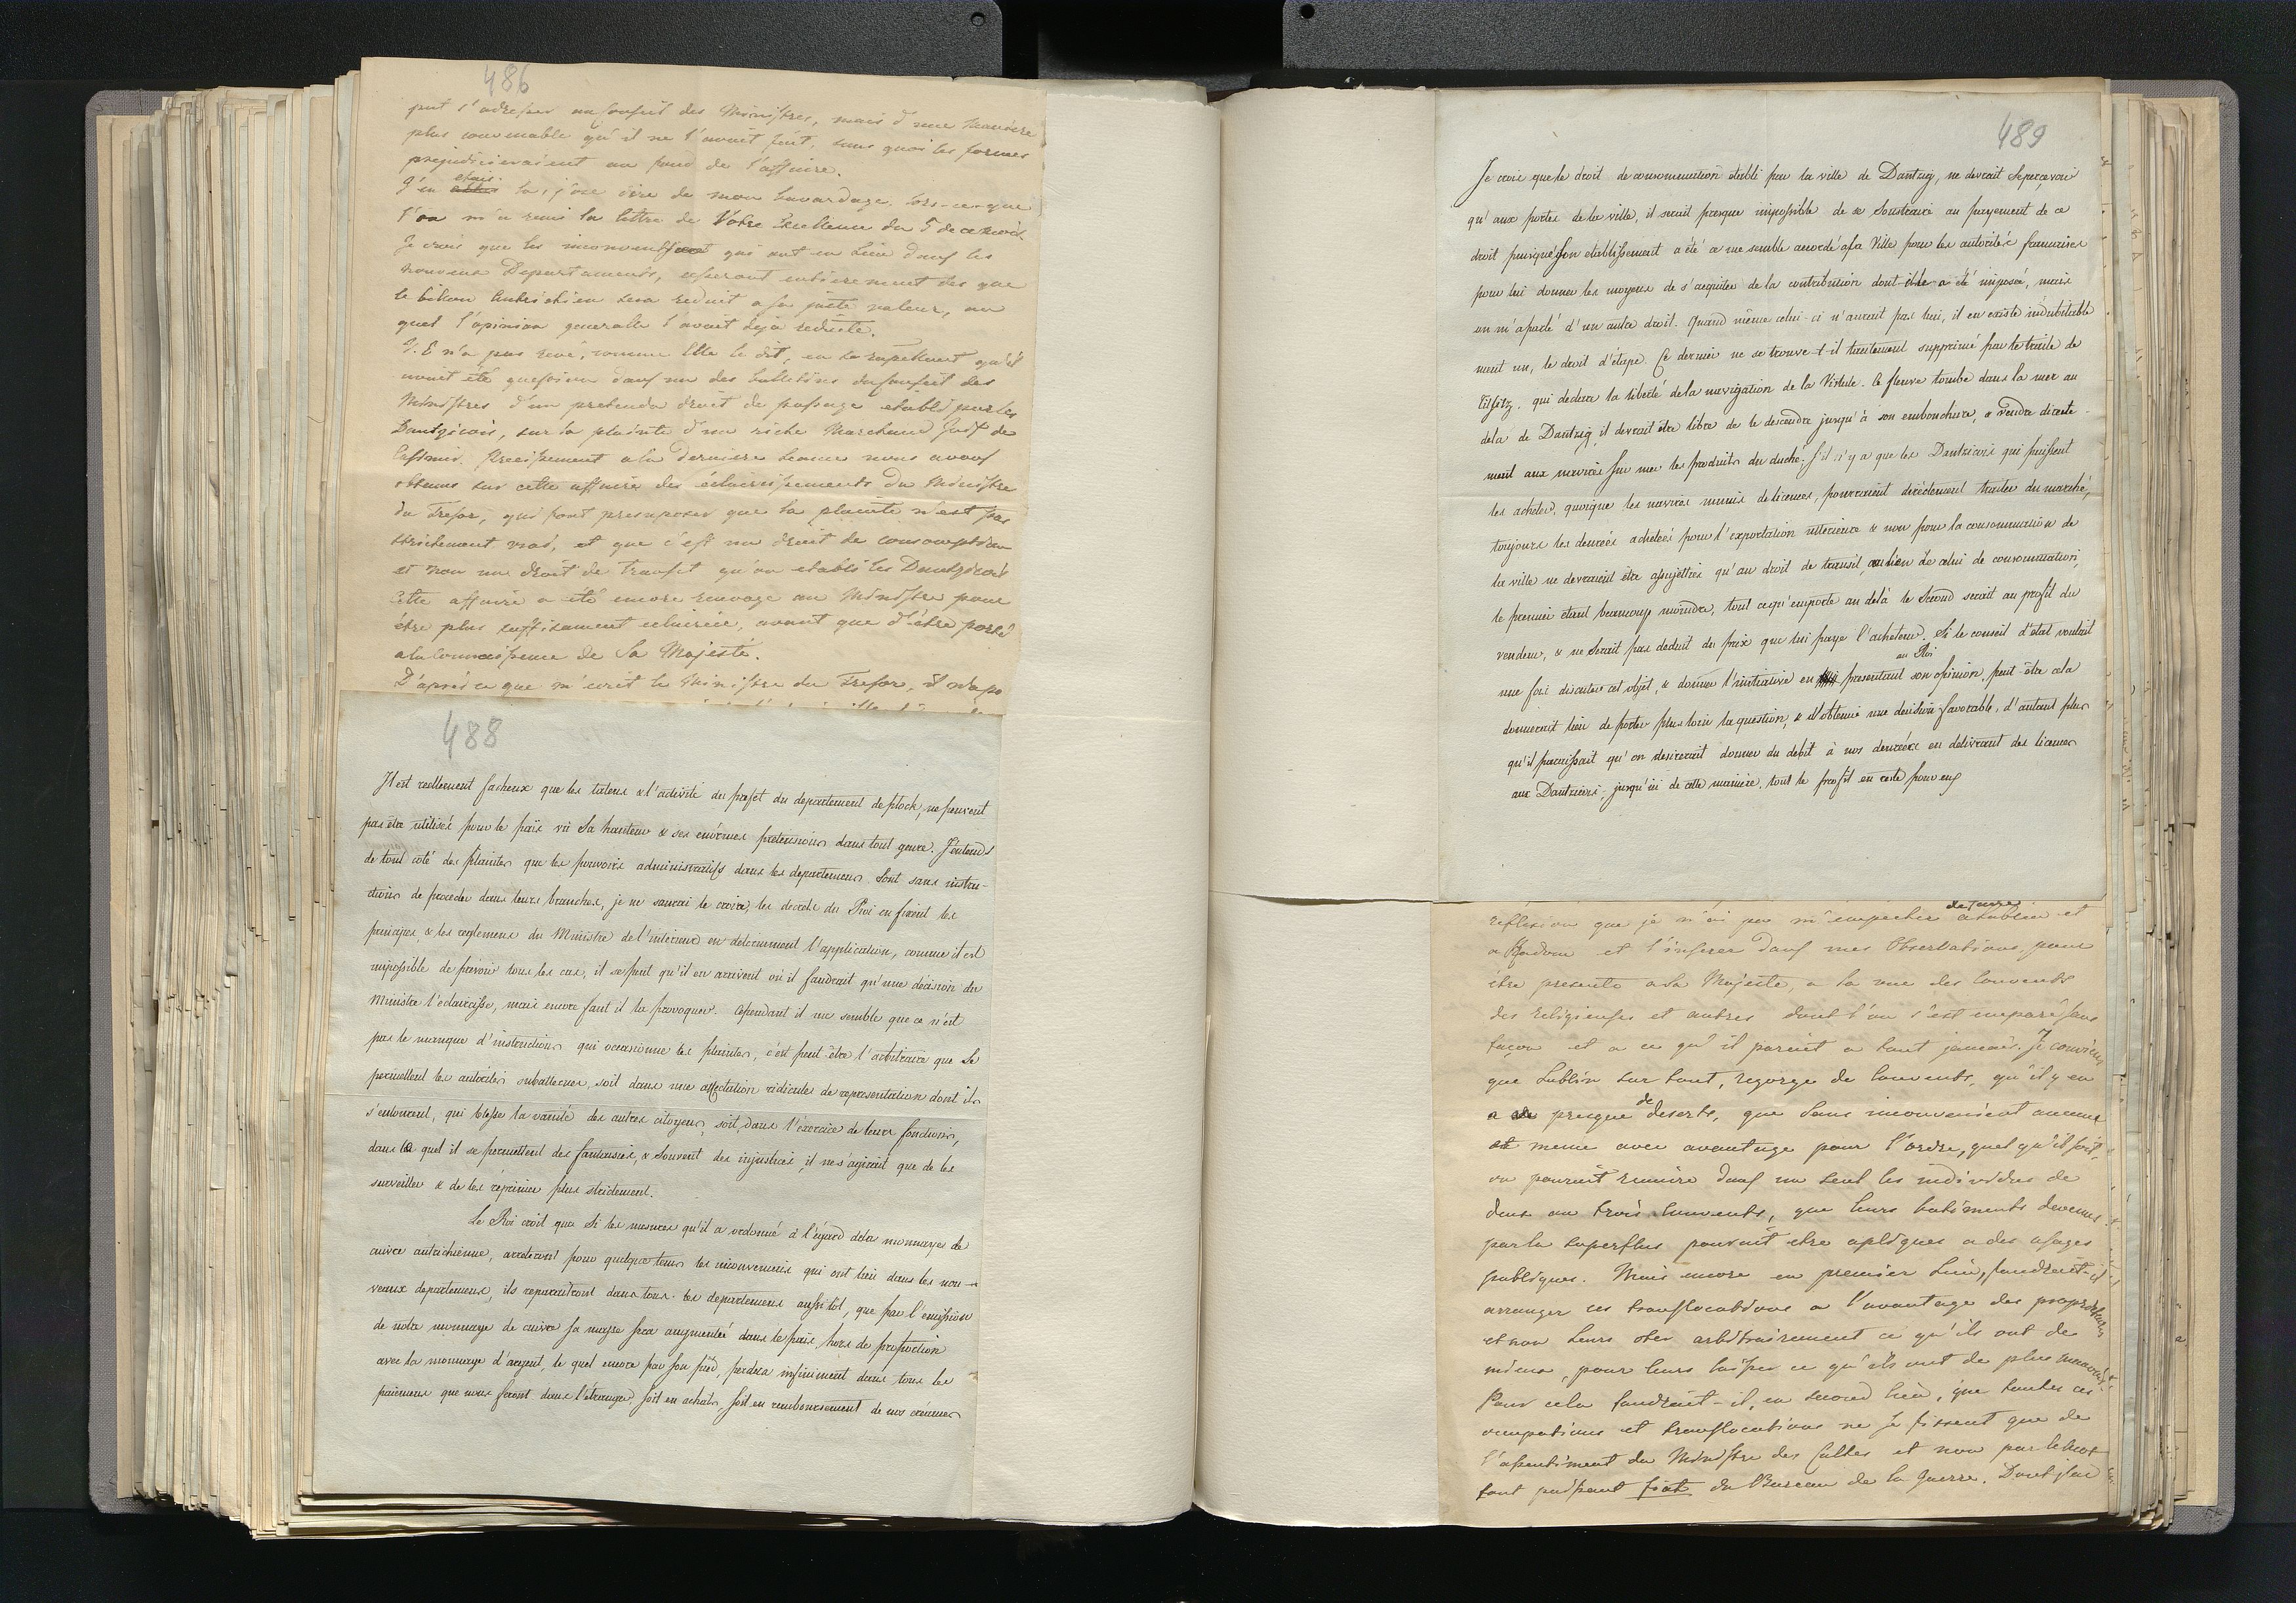 486
put s'adresser au Conseil des Ministres, mais d'une maniere
plus convenable qu'il ne l'avait fait, sans quoi les formes
prejudicieraient au fond de l'affaire.
J'en etais la, j'ose dire de mon bavardage, lors-ce-que
l'on m'a remis la lettre de Votre Excellence du 5 de ce mois.
Je crois que les inconvens qui ont eu lieu dans les
nouveaux Departements, cesseront entierement des que
le billon Autrichien sera reduit a sa juste valeur, au
quel l'opinion generalle l'avait deja reduite.
V. E n'a pas revé, comme Elle le dit, en se rapellant qu'il
avait été question dans un des bulletins du Conseil des
Ministres d'un pretendu droit de passage etabli par les
Dantzicois, sur la plainte d'un riche Marchand Juif de
Casimir. Precisement a la derniere seance nous avons
obtenus sur cette affaire des éclaircissements du Ministre
du Tresor, qui font presuposer que la plainte n'est pas
strictement vrai, et que c'est un droit de consomption
et non un droit de transit qu'on etabli les Dantzicois
Cette affaire a été encore renvoye au Ministre pour
être plus suffisament eclairciée, avant que d'être porté
a la connaissance de Sa Majesté.
D'après ce que m'ecrit le Ministre du Tresor, il n'a pa
488
Il est reellement facheux que les talens & l'activité du prefet du departement de plock, ne peuvent
pas être utilisés pour le païs vû sa hauteur & ses enórmes pretensions dans tout genre. J'entends
de tout coté des plaintes que les pouvoirs administratifs dans les departemens sont sans instru-
ctions de proceder dans leurs branches, je ne saurai le croire, les decrets du Roi en fixent les
principes, & les reglemens du Ministre de l'interieur en determinent l'application, comme il est
impossible de prevoir tous les cas, il se peut qu'il en arrivent où il faudrait qu'une décision du
Ministre l'eclaircisse, mais encore faut il la provoquer. Cependant il me semble que ce n'est
pas le manque d'instructions qui occasionne les plaintes, c'est peut être l'arbitraire que se
permettent les autorités subalternes, soit dans une affectation ridicule de representation dont ils
s'entourent, qui blesse la vanité des autres citoyens, soit dans l'exercice de leurs fonctions,
dans le quel il se permettent des fantaisies, & souvent des injustices, il ne s'agirait que de les
surveiller & de les reprimer plus strictement.
Le Roi croit que si les mesures qu'il a ordonné à l'égard de la monnaye de
cuivre autrichienne, arreteront pour quelque tems les inconveniens qui ont lieu dans les nou-
veaux departemens, ils reparaitront dans tous les departemens aussitôt, que par l'emission
de notre monnaye de cuivre sa masse sera augmentée dans le païs, hors de proportion
avec la monnaye d'argent, le quel encore par son pied, perdra infiniment dans tous les
païemens que nous ferons dans l'étranger, soit en achats, soit en remboursement de nos créances
489
Je crois que le droit de consommation établi par la ville de Dantzig, ne devrait se percevoir
qu'aux portes de la ville, il serait presque impossible de se soustraire au payement de ce
droit puisque son etablissement a été à ce me semble accordé a la Ville par les autorités françaises
pour lui donner les moyens de s'acquiter de la contribution dont elle a été imposée, mais
on m'a parlé d'un autre droit. Quand même celui-ci n'aurait pas lui, il en existe indubitable
ment un, le droit d'étape. Ce dernier ne se trouve-t-il tacitement supprimé par le traité de
Tilsitz, qui declare la liberté de la navigation de la Vistule. Ce fleuve tombe dans la mer au
dela de Dantzig, il devrait être libre de le descendre jusqu'à son embouchure, & vendre directe-
ment aux navires sur mer les produits du duché; s'il n'y a que les Dantzicois qui puissent
les acheter, quoique les navires munis de licences, pourroient directement traiter du marché,
toujours les denrées achetées pour l'exportation ulterieure & non pour la consommation de
la ville ne devraient être assujetties qu'au droit de transit, au lieu de celui de consommation,
le premier étant beaucoup moindre, tout ce qu'emporte au delà le second serait au profit du
vendeur, & ne serait pas deduit du prix que lui paye l'acheteur. Si le conseil d'etat voulait
une fois discuter cet objet, & donner l'initiative en presentant au Roi son opinion, peut-être cela
donnerait lieu de porter plus loin la question, & d'obtenir une decision favorable, d'autant plus
qu'il paraissait qu'on desirerait donner du debit à nos denrées en delivrant des licences
aux Dantzicois, jusqu'ici de cette maniere, tout le profit en reste pour eux
reflexion que je n'ai pu m'empecher de faire a Lublin et
a Radom et l'inserer dans mes Observations pour
être presenté a Sa Majesté, a la vue des Couvents
des religieuses et autres dont l'on s'est emparé sans
façon et a ce qu'il parait a tout jamais. Je conviens
que Lublin sur tout, regorge de Couvents, qu'il y en
a presque de deserts, que sans inconvenient aucun
et meme avec avantage pour l'ordre, quel qu'il soit,
on pourait reunire dans un seul les individus de
deux ou trois Couvents, que leurs batiments devenus
par la superflus pouvait être apliques a des usages
publiques. Mais encore en premier Lieu, faudrait-il
arranger ces translocations a l'avantage des proprietaires
et non leurs oter arbitrairement ce qu'ils ont de
mieux, pour leurs laisser ce qu'ils ont de plus mauvais.
Pour cela faudrait-il, en second lieu, que toutes ces
occupations et translocations ne se fissent que de
l'assentiment du Ministre des Cultes et non par le mot
tout puissant fiat du Bureau de la Guerre. Dont j'ai